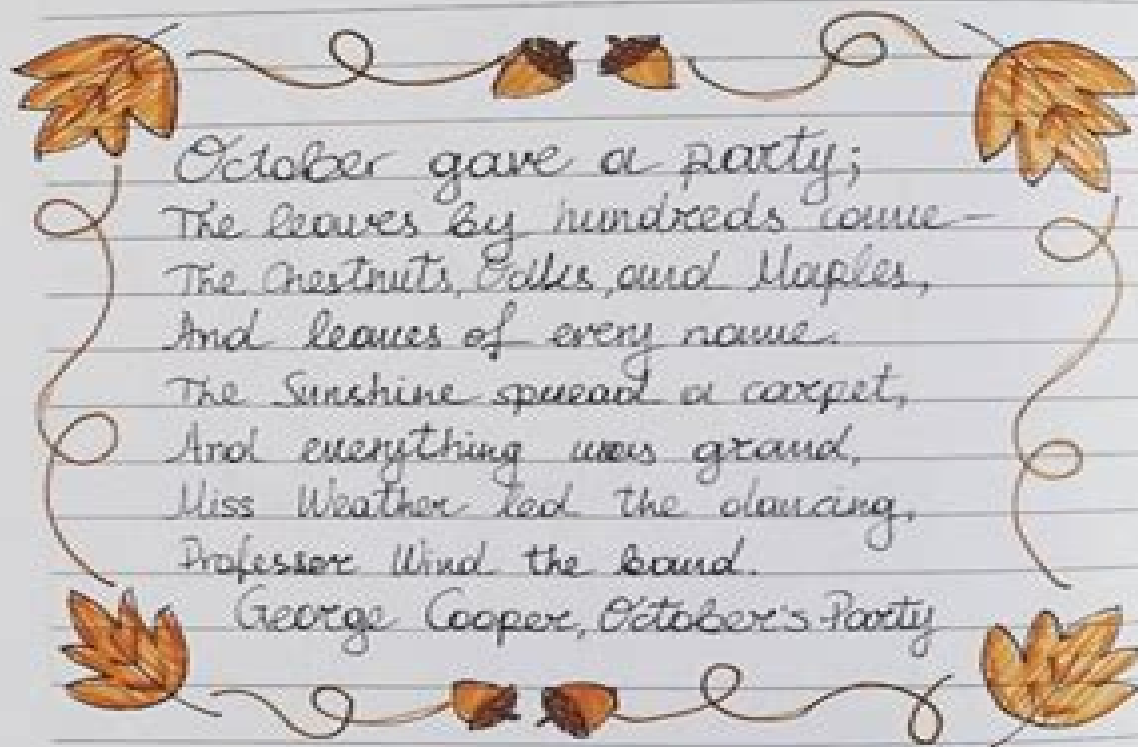 October gave a party;
The leaves by hundreds came-
The Chestnuts, Oaks, and Maples,
And leaves of every name.
The Sunshine spread a carpet,
And everything was grand,
Miss Weather led the dancing,
Professor Wind the band.
George Cooper, October's Party